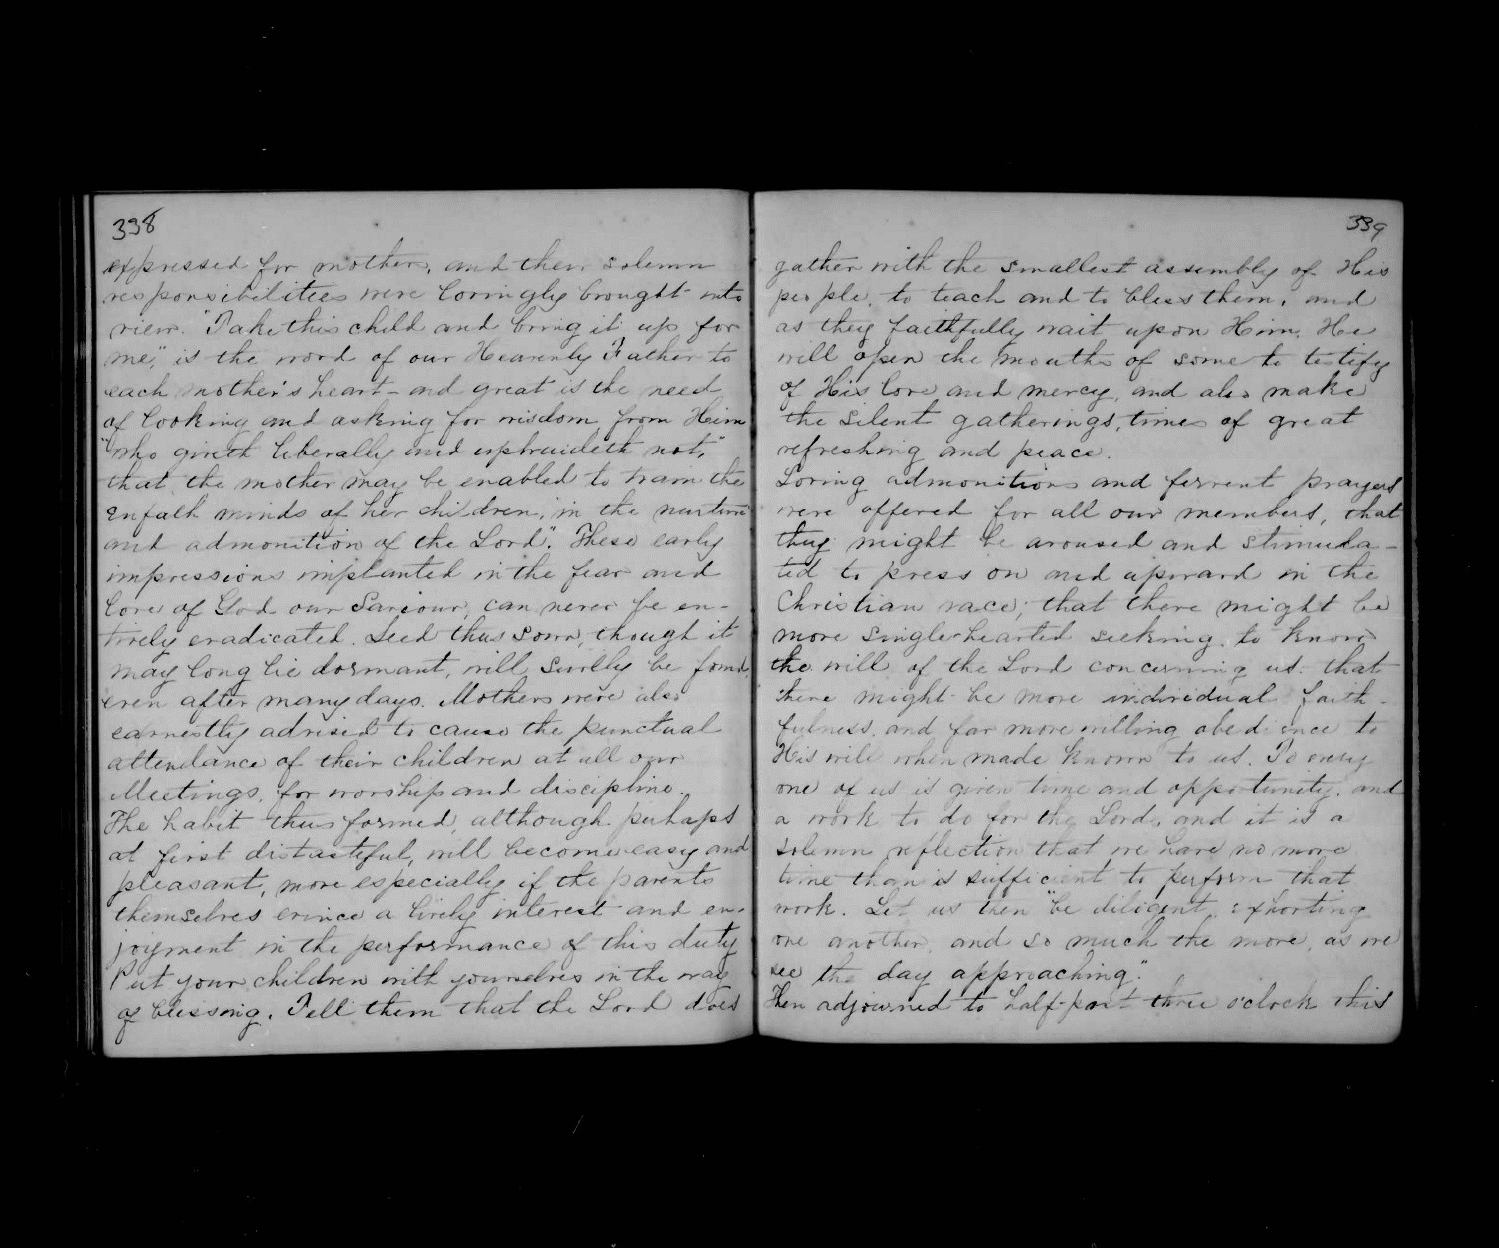 338
expressed for mothers, and their solemn
responsibilities were lovingly brought into
view. "Take this child and bring it up for
me", is the word of our Heavenly Father to
each mother's heart - and great is the need
of looking and asking for wisdom from Him
"who giveth liberally and upbraideth not,"
that the mother may be enabled to train the
minds of her children, "in the nurture
and admonition of the Lord". These early
impressions implanted in the fear and
love of God our Saviour, can never be en-
tirely eradicated. Seed thus sown, though it
may long lie dormant, will be found,
even after many days. Mothers were also
earnestly advised to cause the punctual
attendance of their children at all our
Meetings, for worship and discipline.
The habit thus formed, although perhaps
at first distasteful, will become easy and
pleasant, more especially if the parents
themselves evince a lively interest and en-
joyment in the performance of this duty
Put your children with yourselves in the way
of blessing. Tell them that the Lord does
339
gather with the smallest assembly of His
people, to teach and to bless them, and
as they faithfully wait upon Him, He
will open the mouths of some to testify
of His love and mercy, and also make
the silent gatherings, times of great
refreshing and peace.
Loving admonitions and fervent prayers
were offered for all our members, that
they might be aroused and stimula-
ted to press on and upward in the
Christian race; that there might be
more single-hearted seeking to know
the will of the Lord concerning us: that
there might be more individual faith-
fulness, and far more willing obedience to
His will when made known to us. To every
one of us is given time and opportunity, and
a work to do for the Lord, and it is a
solemn reflection that we have no more
time than is sufficient to perform that
work. Let us then "be diligent, exhorting
one another, and so much the more, as we
see the day approaching."
Then adjourned to half-past three o'clock this